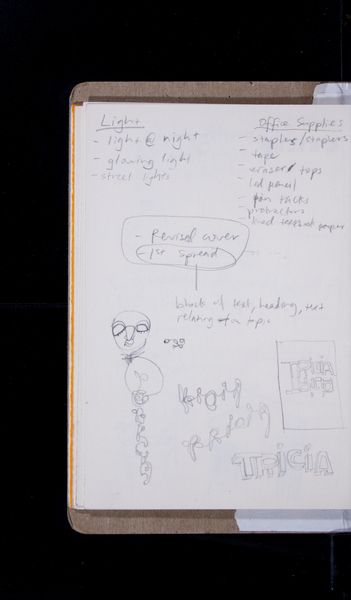 Light
- light @ night
- glowing light
- street lights
Office Supplies
- staples/staplers
- tape
- eraser tops
- led pencil
- pan tacks
- protractors
- lined
- Revised cover
- 1st Spread
w/ text, heading, text
relating to a topic
TRICIA
TRICIA